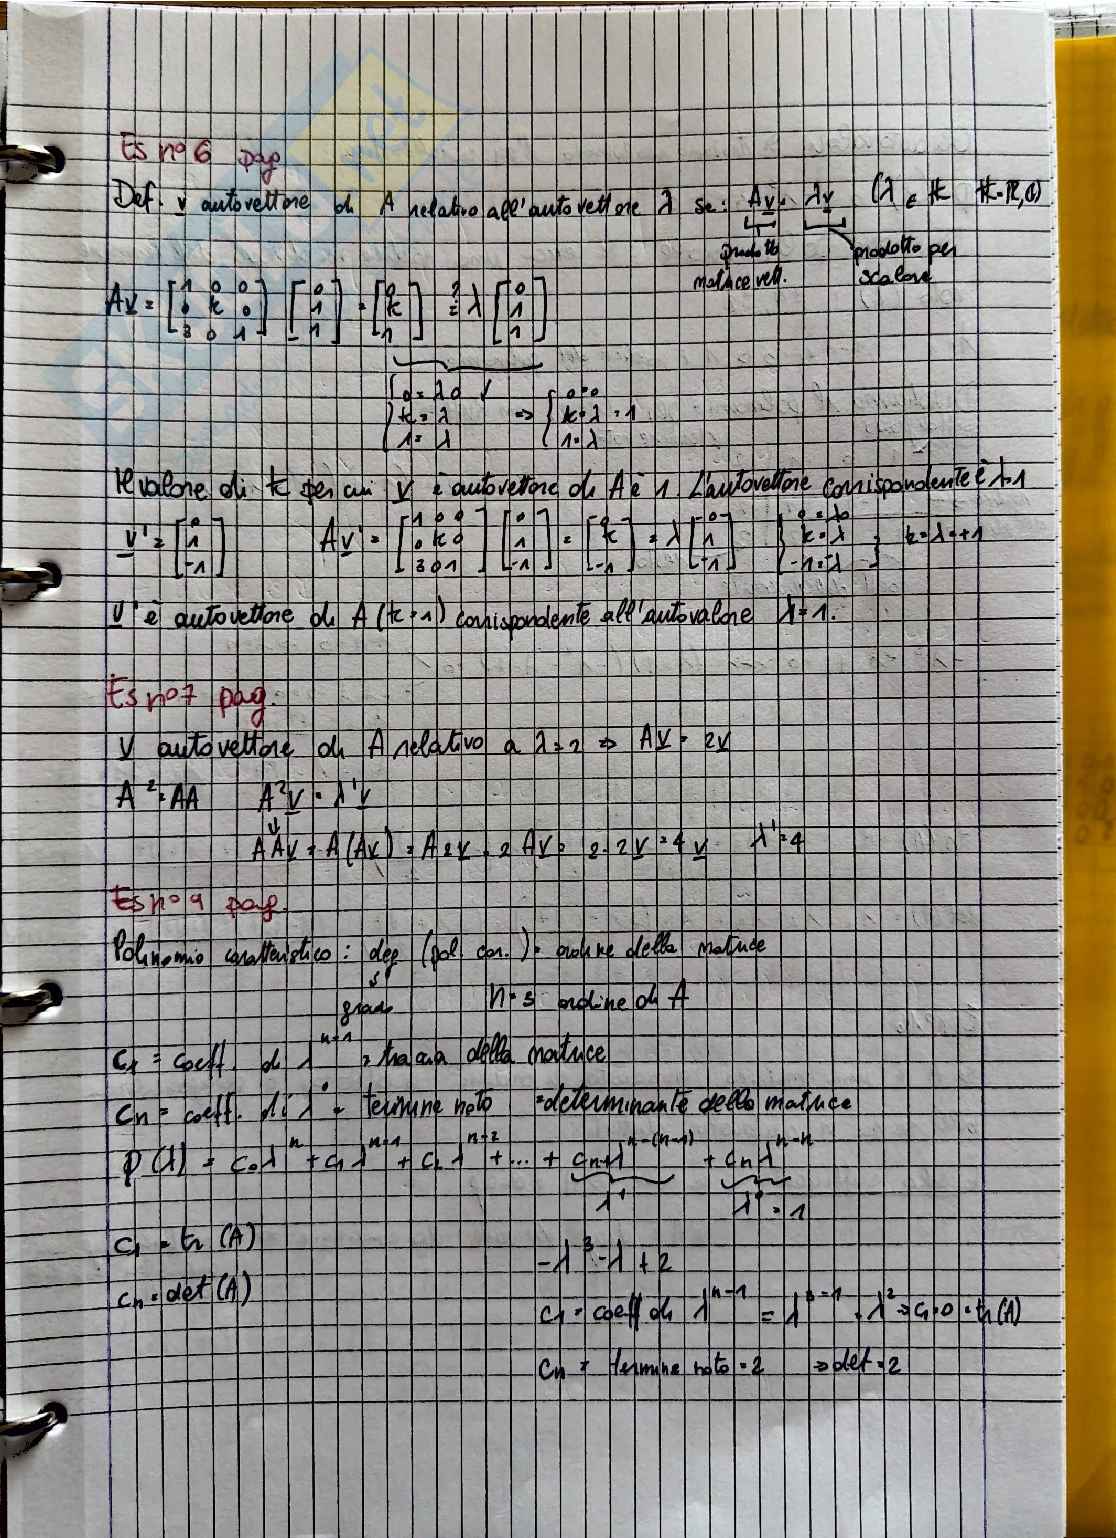 Es n°6 pag
Def. v autovettore di A relativo all'autovettore λ se: Av = λv (λ ∈ K K=R,C)
prodotto matrice vett.
prodotto per scalare
Av = [1 0 0; 0 k 0; 3 0 1] [0; 1; 1] = [0; k; 1] ?= λ [0; 1; 1]
{0 = λ0 ✓ {0=0
{k = λ => {k=λ=1
{1 = λ {1=λ
Il valore di k per cui v è autovettore di A è 1. L'autovettore corrispondente è λ=1
v' = [0; 1; -1] Av' = [1 0 0; 0 k 0; 3 0 1] [0; 1; -1] = [0; k; -1] = λ [0; 1; -1] {0=λ0 k=λ -1=-λ} k=λ=+1
v' è autovettore di A (k=1) corrispondente all'autovalore λ=1.
Es n°7 pag.
v autovettore di A relativo a λ=2 => Av = 2v
A² = AA A²v = λ'v
↓
AAv = A(Av) = A2v = 2Av = 2·2v = 4v λ'=4
Es n°9 pag.
Polinomio caratteristico: deg (pol. car.) = ordine della matrice
↓
grado n=3 ordine di A
c₁ = coeff. di λⁿ⁻¹ = traccia della matrice
cn = coeff. di λ⁰ = termine noto = determinante della matrice
p(λ) = c₀λⁿ + c₁λⁿ⁻¹ + c₂λⁿ⁻² + ... + cn-1λⁿ⁻⁽ⁿ⁻¹⁾ + cnλⁿ⁻ⁿ
λ¹ λ⁰ = 1
c₁ = tr (A)
-λ³-λ+2
cn = det(A)
c₁ = coeff di λⁿ⁻¹ = λ³⁻¹ = λ² => c₁=0 = tr(A)
cn = termine noto = 2 => det = 2